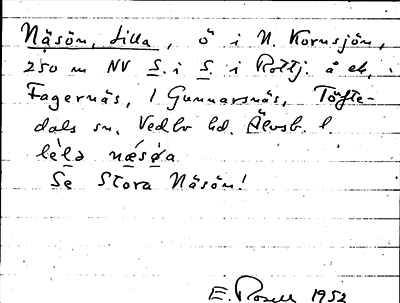 Näsön, Lilla, ö i N. Kornsjön,
250 m NV S. i S. i Rottj. å ek.
Fagernäs, 1 Gunnarsnäs, Töfte-
dals sn. Vedbo hd. Älvsb. l.
lèlə næ̀søa
Se Stora Näsön!
E. Rosell 1952